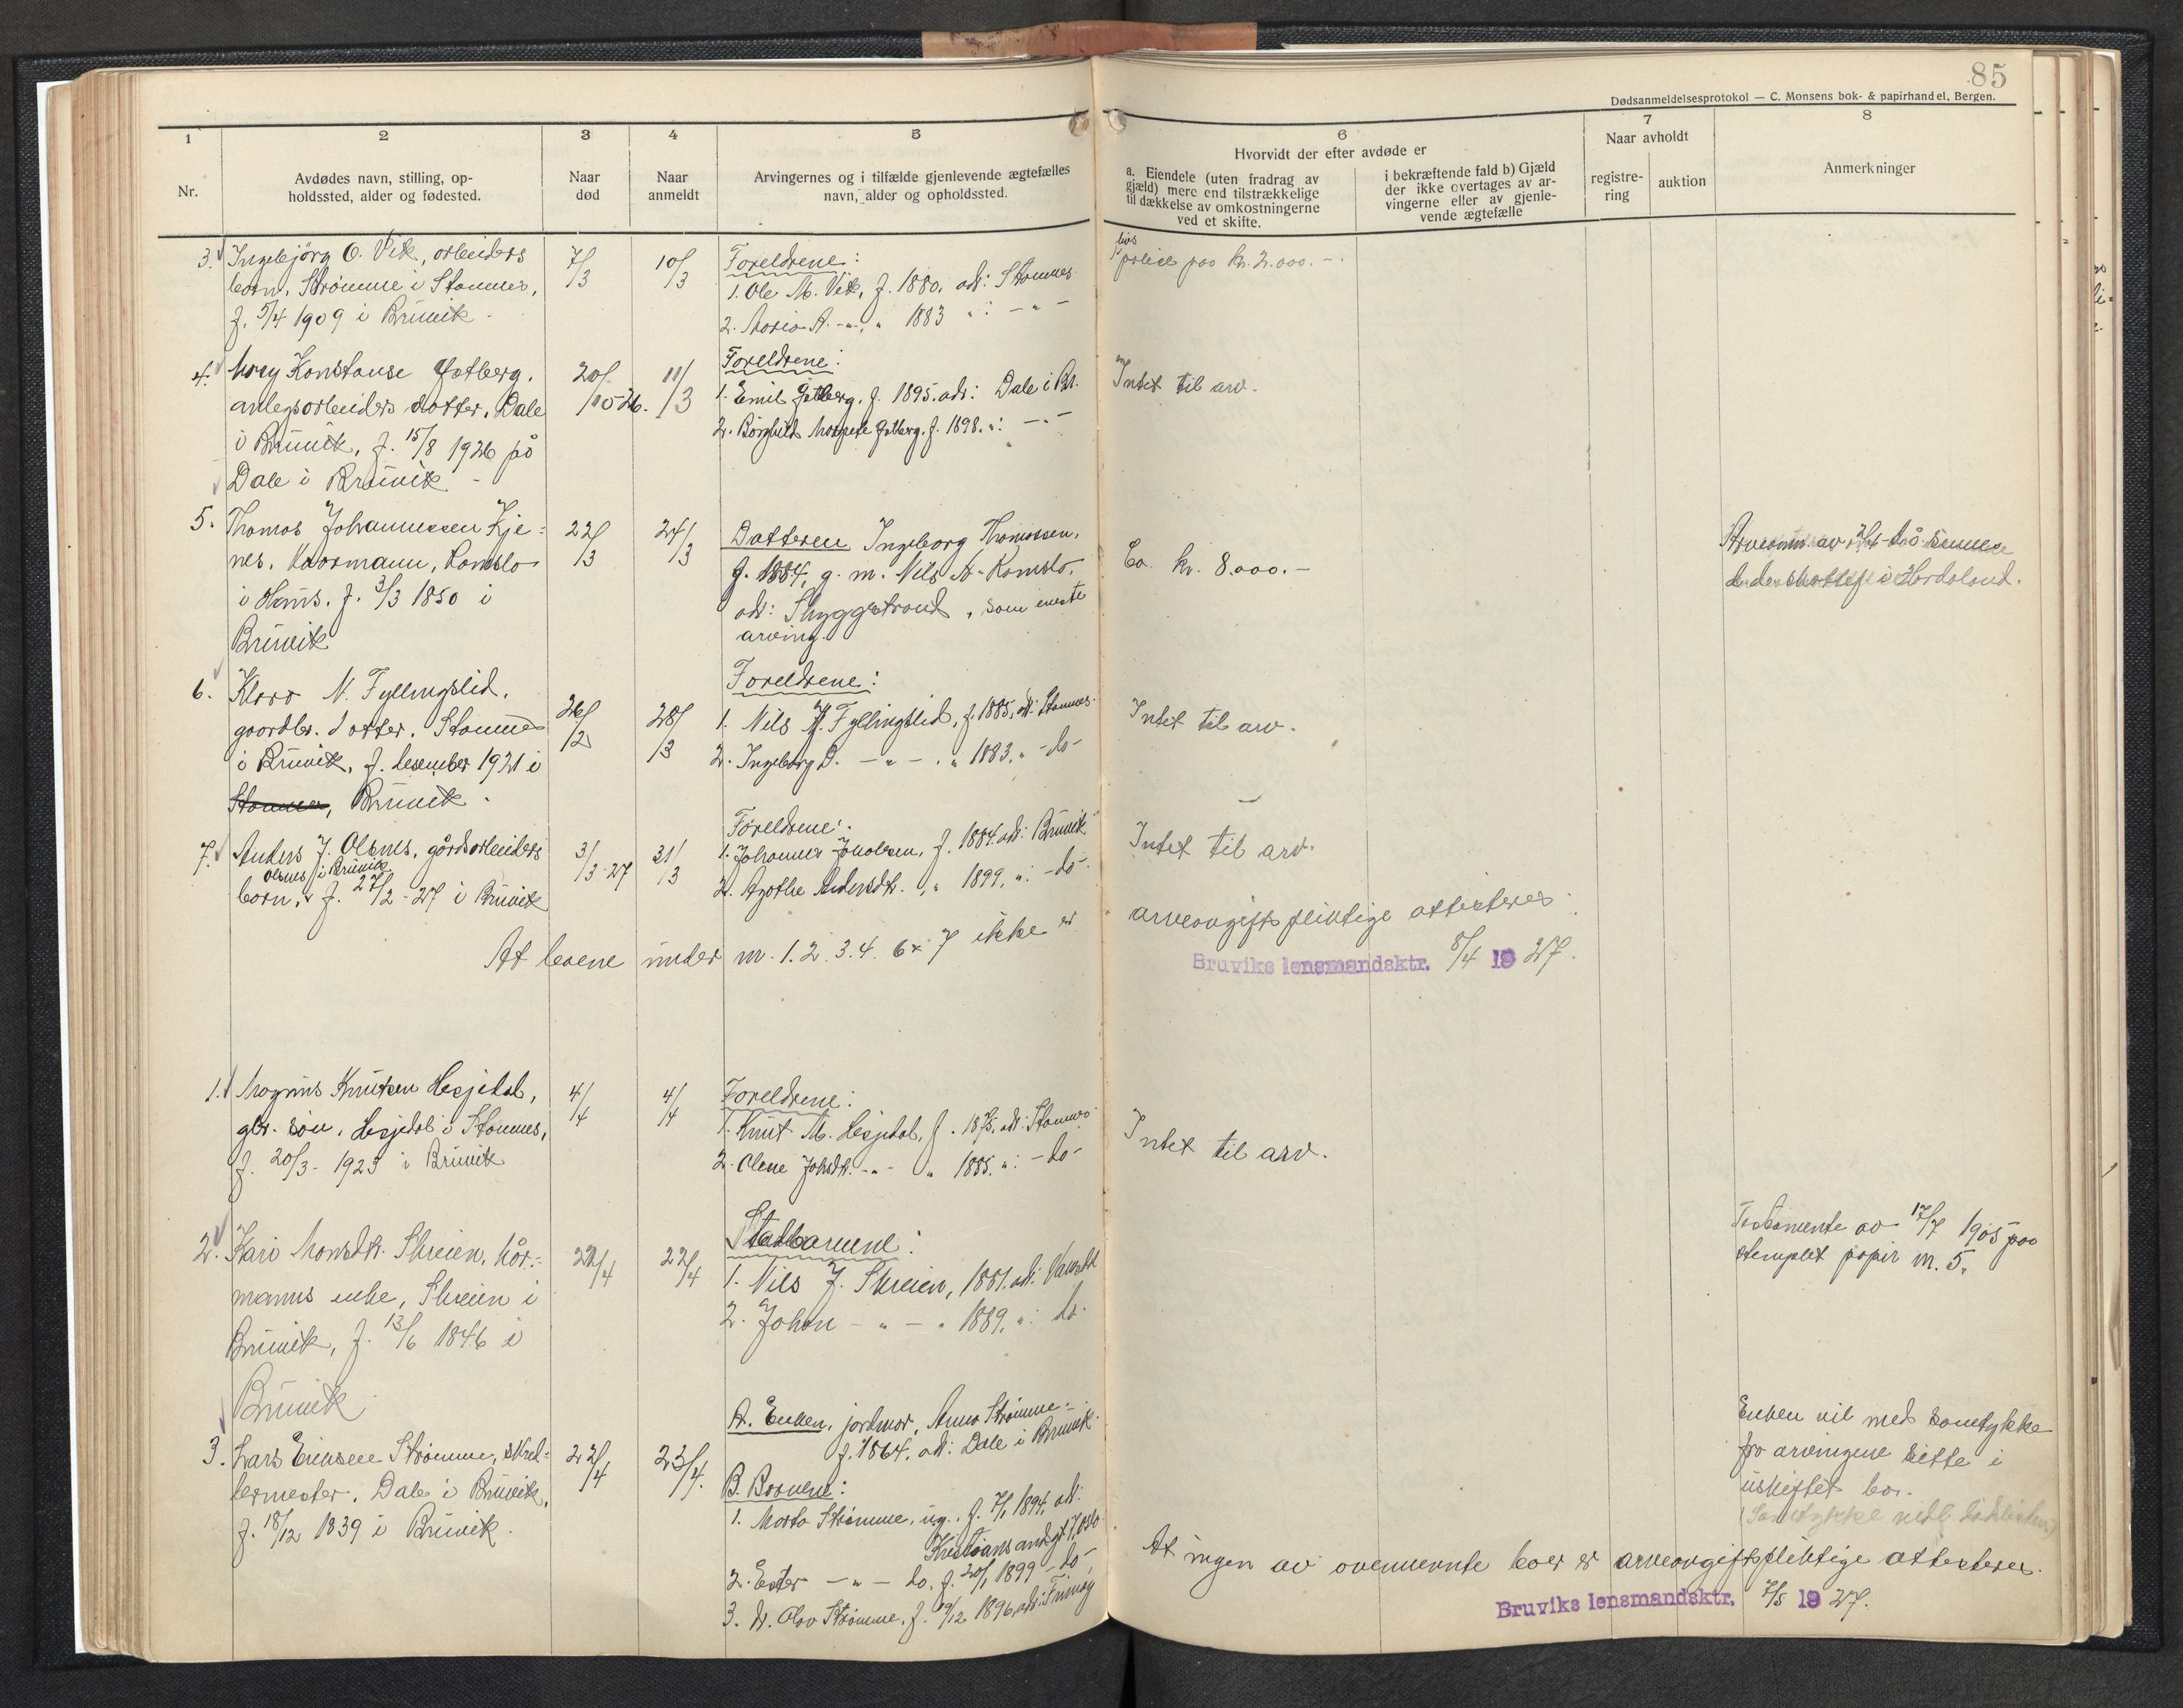 85
Dødsanmeldelsesprotokol — C. Monsens bok- & papirhandel, Bergen.
1
Nr.
2
Avdødes navn, stilling, op-
holdssted, alder og fødested.
3
Naar
død
4
Naar
anmeldt
5
Arvingernes og i tilfælde gjenlevende ægtefælles
navn, alder og opholdssted.
6
Hvorvidt der efter avdøde er
a. Eiendele (uten fradrag av
gjæld) mere end tilstrækkelige
til dækkelse av omkostningerne
ved et skifte.
i bekræftende fald b) Gjæld
der ikke overtages av ar-
vingerne eller av gjenle-
vende ægtefælle
7
Naar avholdt
registre-
ring
auktion
8
Anmerkninger
3. Ingebjörg O. Vik, arbeiders
barn, Strømme i Stamnes,
f. 5/4 1909 i Bruvik.
7/3
10/3
Foreldrene:
1. Ole M. Vik, f. 1880, adr: Stamnes
2. Maria A. -"-, " 1883 ": - " -
livs
police paa kr. 2.000.-
4. Mary Konstanse Gotberg,
anlegsarbeiders datter, Dale
i Bruvik, f. 15/8 1926 på
Dale i Bruvik -
20/10 26.
11/3
Foreldrene:
1. Emil Gotberg, f. 1895, adr: Dale i Br.
2. Borghild Gotberg, f. 1898. ": - " -
Intet til arv.
5. Thomas Johannessen Kje-
nes, kaarmann, Romslo
i Haus, f. 3/3 1850 i
Bruvik
22/3
24/3
Datteren Ingeborg Thomassen,
f. 1884, g. m. Nils A. Romslo,
adr: Skyggestrand, som eneste
arving.
Ca. kr. 8.000.-
i Hordaland.
6. Klara N. Fyllingslid,
gaardbr. datter, Stamnes
i Bruvik, f. desember 1921 i
Stamnes, Bruvik.
26/2
28/3
Foreldrene:
1. Nils K. Fyllingslid, f. 1885, adr: Stamnes.
2. Ingeborg D. - " - . " 1883, " -do-
Intet til arv.
7. Anders J. Olsnes, gårdsarbeiders
olsnes i Bruvik
barn, f. 27/2 - 27 i Bruvik
3/3 - 27
31/3
Foreldrene:
1. Johannes Jonassen, f. 1884. adr: Bruvik
2. Agathe Andersdtr. , " 1899, ": -do-
Intet til arv.
At boene under nr. 1. 2. 3. 4. 6 & 7 ikke er
arveavgiftspliktige attesteres
Bruviks lensmandsktr. 8/4 19 27.
1. Magnus Knutsen Hesjedal,
gbr. søn, Hesjedal i Stamnes,
f. 20/3 - 1923 i Bruvik
4/4
4/4
Foreldrene:
1. Knut M. Hesjedal, f. 1875, adr: Stamnes
2. Olene Johsdtr. -"- " 1885. ": -do-
Intet til arv.
2. Kari Monsdtr. Skreien, kår-
manns enke, Skreien i
Bruvik, f. 13/6 1846 i
Bruvik
22/4
22/4
Stedbarnene:
1. Nils J. Skreien, 1881. adr:
2. Johan - " - " 1889, ": do.
Testamente av 17/7 1905 paa
stemplet papir nr. 5.
3. Lars Eriksen Strømme, skred-
dermester, Dale i Bruvik,
f. 18/12 1839 i Bruvik.
22/4
23/4.
A. Enken, jordmor, Anna Strømme,
f. 1864, adr: Dale i Bruvik.
B. Barnene:
1. Marta Strømme, ug., f. 7/1 1894, adr:
Kristiansandgt 7, Oslo
2. Ester - " - do. f. 20/1 1899 -do-
3. Olav Strømme, f. 9/12 1896, adr:
Enken vil med samtykke
fra arvingene sitte i
uskiftet bo.
At ingen av ovennevnte boer er arveavgiftspliktige attesteres.
Bruviks lensmandsktr. 7/5 19 27.